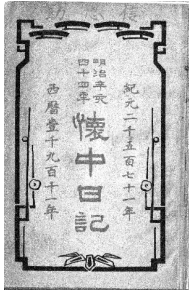 紀元二千五百七十一年
明治辛亥
四十四年
懷中日記
西曆壹千九百十一年